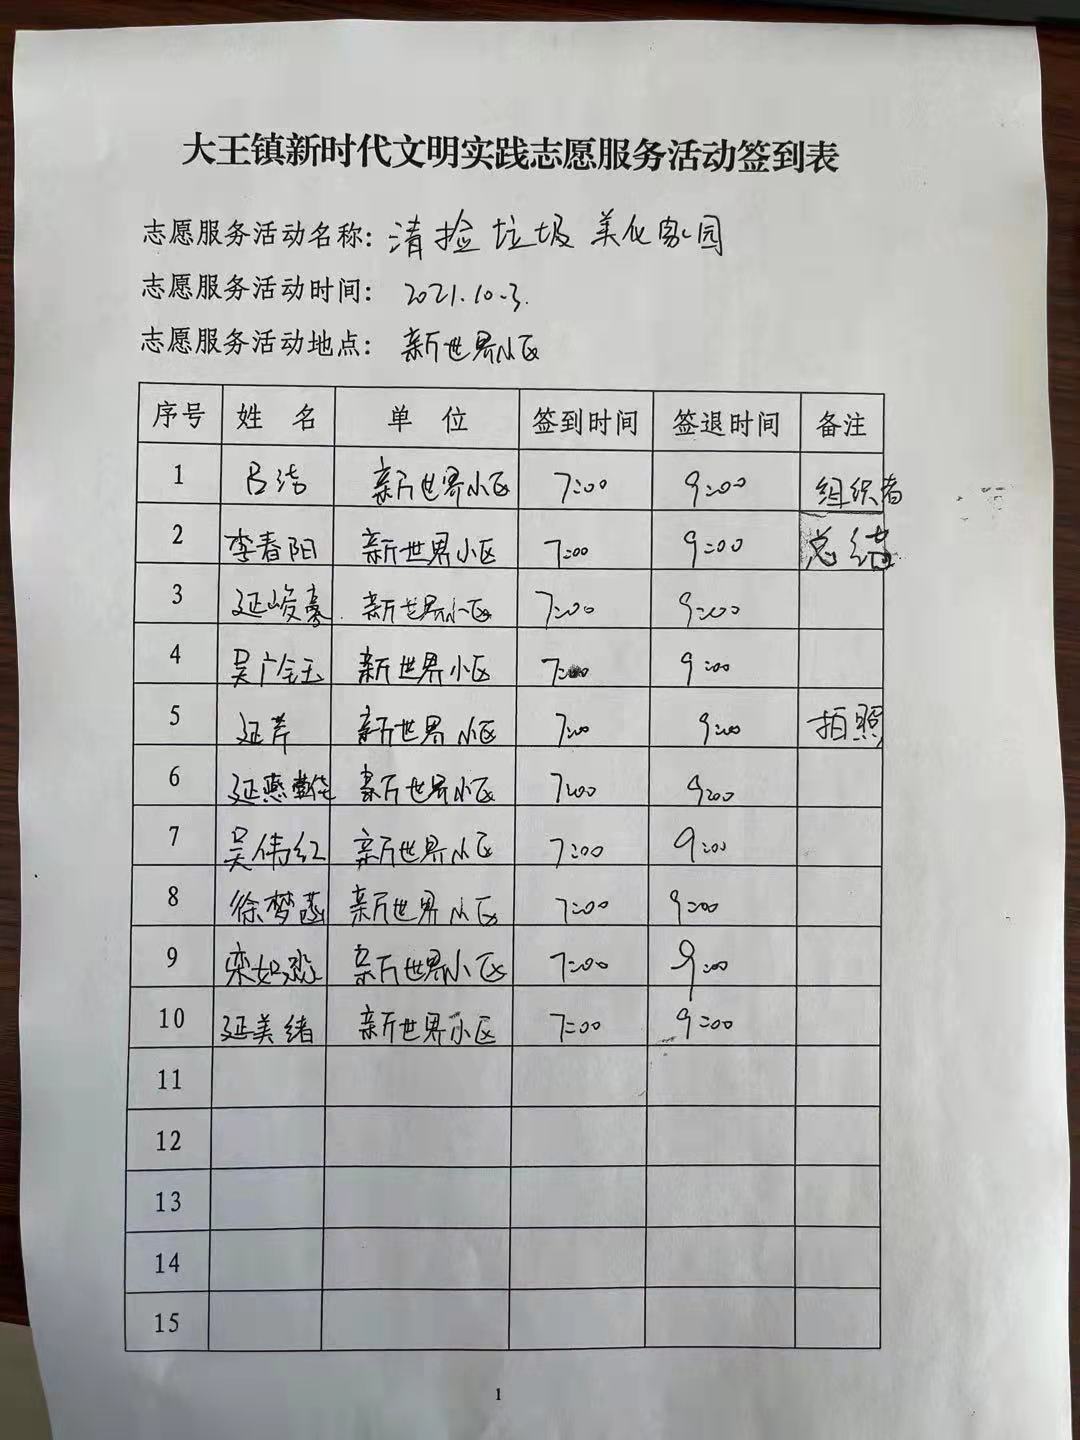 大王镇新时代文明实践志愿服务活动签到表
志愿服务活动名称：清捡垃圾 美化家园
志愿服务活动时间：2021.10.3.
志愿服务活动地点：新世界小区
序号 姓名 单位 签到时间 签退时间 备注
1 吕洁 新世界小区 7:00 9:00 组织者
2 李春阳 新世界小区 7:00 9:00 总结
3 延峻豪 新世界小区 7:00 9:00
4 吴广玉 新世界小区 7:00 9:00
5 延芹 新世界小区 7:00 9:00 拍照
6 延燕 新世界小区 7:00 9:00
7 吴伟红 新世界小区 7:00 9:00
8 徐梦菡 新世界小区 7:00 9:00
9 栾如 新世界小区 7:00 9:00
10 延美绪 新世界小区 7:00 9:00
11
12
13
14
15
1